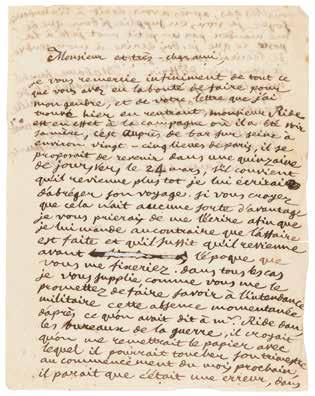 Monsieur et très-cher ami
je vous remercie infiniment de tout ce
que vous avez eu la bonté de faire pour
mon gendre, et de votre lettre que j'ai
trouvé hier en rentrant, monsieur Ride
est en effet à la campagne où il a été voir
sa mère, c'est auprès de bar sur seine à
environ vingt-cinq lieues de paris, il se
proposait de revenir dans une quinzaine
de jours, vers le 24 mars, s'il convient
qu'il revienne plustot je lui écrirai
d'abréger son voyage. si vous croyez
que cela n'ait aucune sorte d'avantage
je vous prierai de me l'écrire afin que
je lui mande au contraire que l'affaire
est faite et qu'il suffit qu'il revienne
avant l'époque que
vous me fixeriez. dans tous les cas
je vous supplie comme vous me le
promettez de faire savoir à l'intendance
militaire cette absence momentanée
d'après ce qu'on avait dit à mr. Ride dans
les bureaux de la guerre, il croyait
qu'on me remettrait le papier avec
lequel il pourrait toucher son trimestre
au commencement du mois prochain
il parait que c'était une erreur, dans